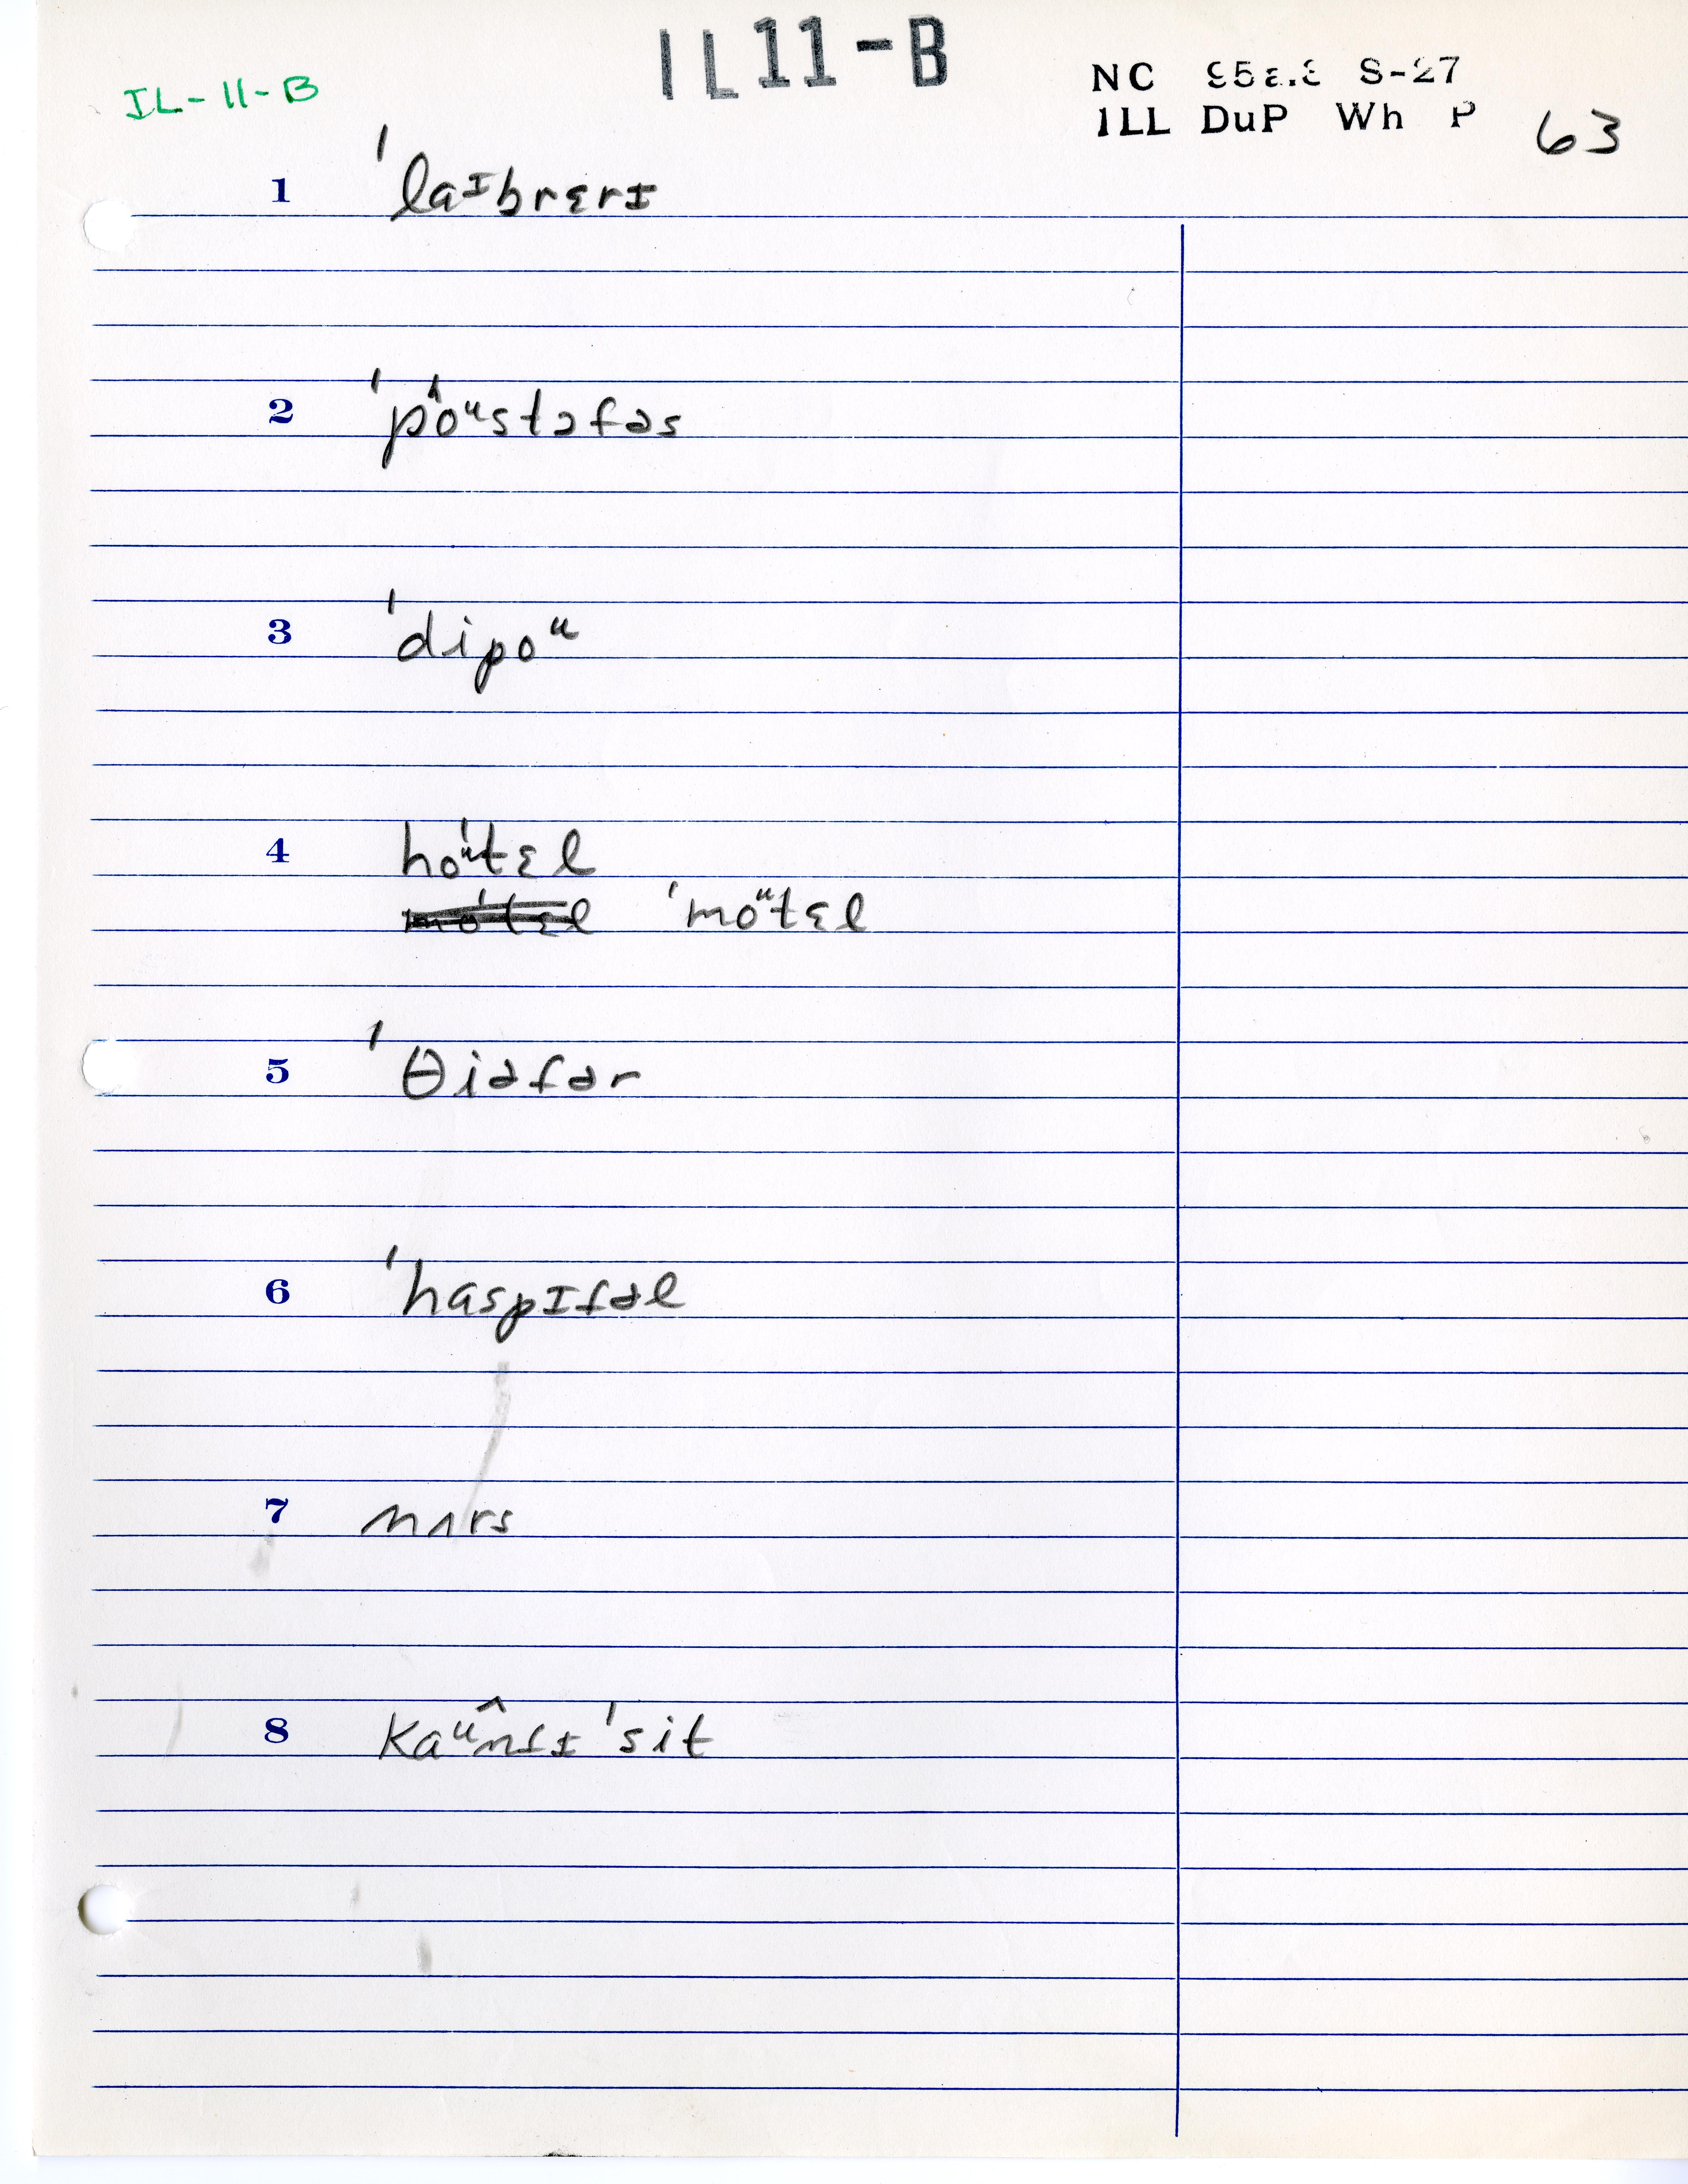 IL11-B
IL-11-B
NC 95a.3 S-27
ILL DuP Wh P 63
1 ˈlaᶦbrɛrɪ
2 ˈpo^ᵘstəfəs
3 ˈdipoᵘ
4 hoᵘˈtɛl
ˈmoᵘtɛl
5 ˈθiəfər
6 ˈhaspɪſəl
7 nʌrs
8 kaᵘn̂ſɪ ˈsit